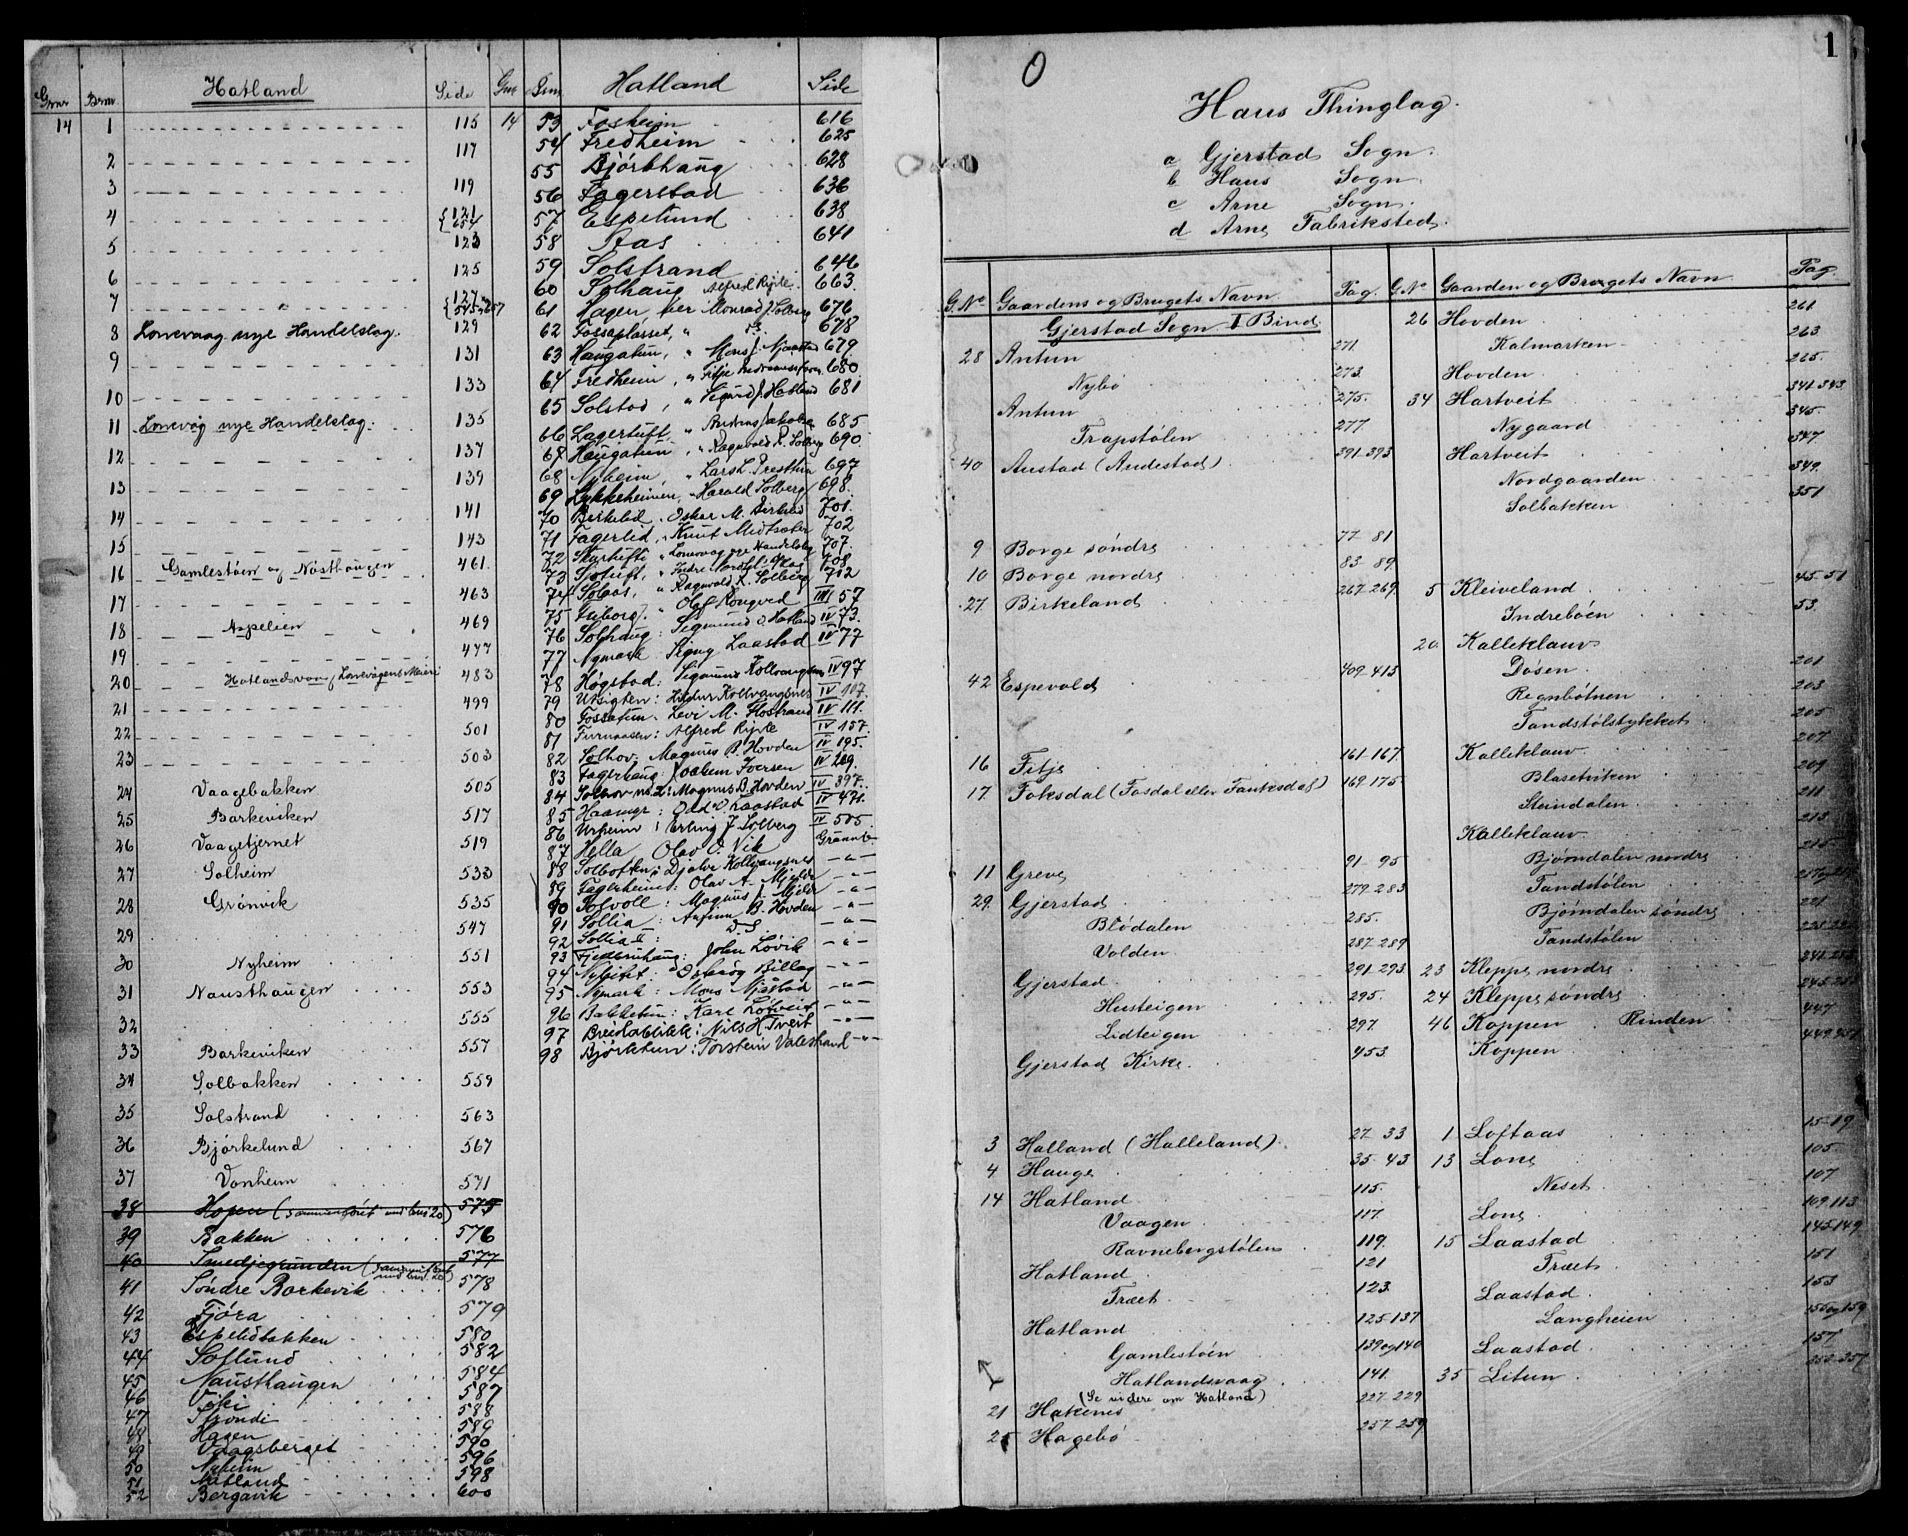 Gnr Bnr Hatland Side
14 1 115
2 117
3 119
4 {121 254
5 123
6 125
7 127
8 Lonevaag nye Handelslag. 129
9 131
10 133
11 Lonevåg nye Handelslag. 135
12 137
13 139
14 141
15 143
16 Gamlestöen og Nösthaugen 461
17 463
18 Aspelien 469
19 477
20 Hatlandsvaag, Lonevågens Meieri 483
21 499
22 501
23 503
24 Vaagebakken 505
25 Barkeviken 517
26 Vaagetjernet 519
27 Solheim 533
28 Grönvik 535
29 547
30 Nyheim 551
31 Nausthaugen 553
32 555
33 Barkeviken 557
34 Solbakken 559
35 Solstrand 563
36 Bjórkelund 567
37 Vonheim 571
38 Hopen (sammenföiet med bnr 20) 575
39 Bakken 576
40 Smedjegrunden (sammenf. med bnr. 20) 577
41 Söndre Barkevik 578
42 Fjöra 579
43 Espelidbakken 580
44 Soflund 582
45 Nausthaugen 584
46 Viki 587
47 Strondi 588
48 Hagen 589
49 Vaagsberget 590
50 Nyheim 596
51 Hatland 598
52 Bergavik 600
Gnr Bnr Hatland Side
14 53 Fosheim 616
54 Fredheim 625
55 Björkhaug 628
56 Fagerstad 636
57 Espelund 638
58 Aas 641
59 Solstrand 646
60 Solhaug Alfred Rypte 663.
61 Hagen, eier Monrad J. Solberg 676
62 Fossaplasset, " 678
63 Haugatun, " Mons J. Njaastad 679
64 Fredheim, " Fitje 680
65 Solstad, " Sigurd J. Hatland 681
66 Lagertuft, " Andreas Jakobsen 685
67 Haugatun, " Ragnvald K. Solberg 690
68 Nyheim, " Lars L. Presthun 697
69 Lykkeheimen, " Harald Solberg 698.
70 Birkelid, Oskar M. Birkelid 701.
71 Fagerlid, " Knut Midtsæter 702
72 " Lonevaag nye Handelslag 707.
73 708
74 Solaas, " Ragnvald K. Solberg 712
75 Viborg, " Olaf Rongved III 57
76 Solhaug: Sigmund O. Hatland IV 73.
77 Nymark: Signy Laastad IV 77
78 Högstad: Sigmund Kollvangsnes IV 97
79 Utsigten: Kollvangsnes IV 107.
80 Fossatun. Levi M. Flostrand IV 111.
81 Furuaasen: Alfred Rypte IV 157.
82 Solhov. Magnus B. Hovden IV 195.
83 Fagerhaug: Joakim Iversen IV 269.
84 Solhov nr 2: Magnus B. Hovden IV 397.
85 Haamyr: Odd O. Laastad IV 471.
86 Urheim: Erling J Solberg IV 505.
87 Hella Olav O. Vik Grannb.
88 Solbotten: Djalve Kollvangsnes - " -
89 Fagerheim: Olav A. Mjelde - " -
90 Solvoll: Magnus J. Mjelde - " -
91 Sollia: Arfinn B. Hovden - " -
92 Sollia II: D.S. - " -
93 Fjellbruhaug: John Lövik
94 - " -
95 Nymark: Mons Njåstad - " -
96 Bakketun: Karl Löfveit - " -
97 Breidablikk: Nils H. Tveit - " -
98 Björktun: Torstein Valestrand - " -
1
O
Haus Thinglag.
a Gjerstad Sogn.
b Haus Sogn.
c Arne Sogn.
d Arne Fabriksted.
G.No Gaardens og Brugets Navn Pag.
Gjerstad Sogn I Bind.
28 Antun 271.
Nybö 273.
Antun 275.
Trapstölen 277
40 Austad (Audestad) 391-393
9 Borge söndre 77-81
10 Borge nordre 83-89
27 Birkeland 267-269.
42 Espevold 409-413
16 Fitje 161-167.
17 Foksdal (Fosdal eller Fauksdal) 169-175
11 Greve 91-95
29 Gjerstad 279-283
Blödalen 285.
Volden 287-289
Gjerstad 291-293
Husteigen 295.
Lidteigen 297.
Gjerstad Kirke. 453.
3 Halland (Halleland) 27-33
4 Hauge 35-43
14 Hatland 115.
Vaagen 117.
Ravnebergstölen 119.
Hatland 121
Træet 123.
Hatland 125-137
Gamlestöen 139 og 140
Hatlandsvaag 141.
(Se videre om Hatland)
21 Hakenes 227-229
25 Hagebö 257-259
G.No Gaarden og Brugets Navn Pag.
26 Hovden 261
Kalmarken 263
Hovden 265.
34 Hartveit 341-343
Nygaard 345.
Hartveit 347.
Nordgaarden 349.
Solbakken 351
5 Kleiveland 45-51
Indreböen 53.
20 Kalleklauv
Dosen 201
Regnbötnen 203
Tandstölstykket 205
Kalleklauv 207
Blasetviken 209
Steindalen 211
Kalleklauv 213.
Bjørndalen nordre 215
Tandstölen
Bjørndalen söndre 221
Tandstölen
23 Kleppe nordre
24 Kleppe söndre
46 Koppen Rinden 447
Koppen 449-451
1 Loftaas 15-19
13 Lone 105.
Neset 107
Lone 109-113
15 Laastad 145-149
Træet 151
Laastad 153
Langheien 155 og 159
Laastad 157.
35 Litun 353-357